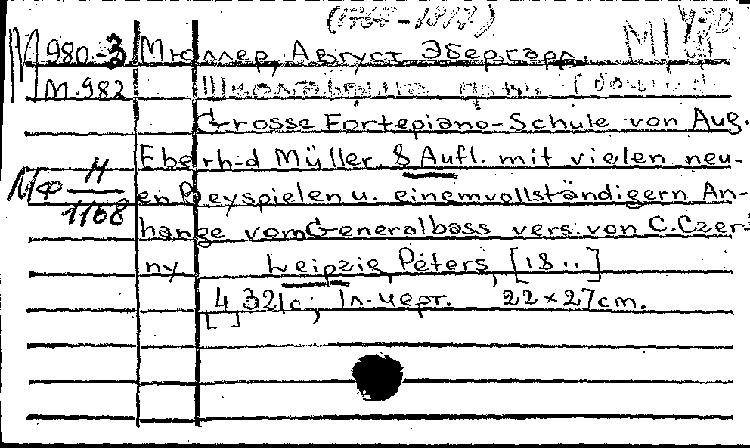 (1767-1817)
М 980-3 Мюллер, Август Эбергард.
М.982
Grosse Fortepiano-Schule von Aug.
Eberh-d Müller. 8 Aufl. mit vielen neu-
Мф М/1168 en Beyspielen u. einem vollständigern An-
hange vom Generalbass vers. von C. Czer-
ny Leipzig, Peters, [18..]
[4] 321c; 1л.черт. 22×27cm.